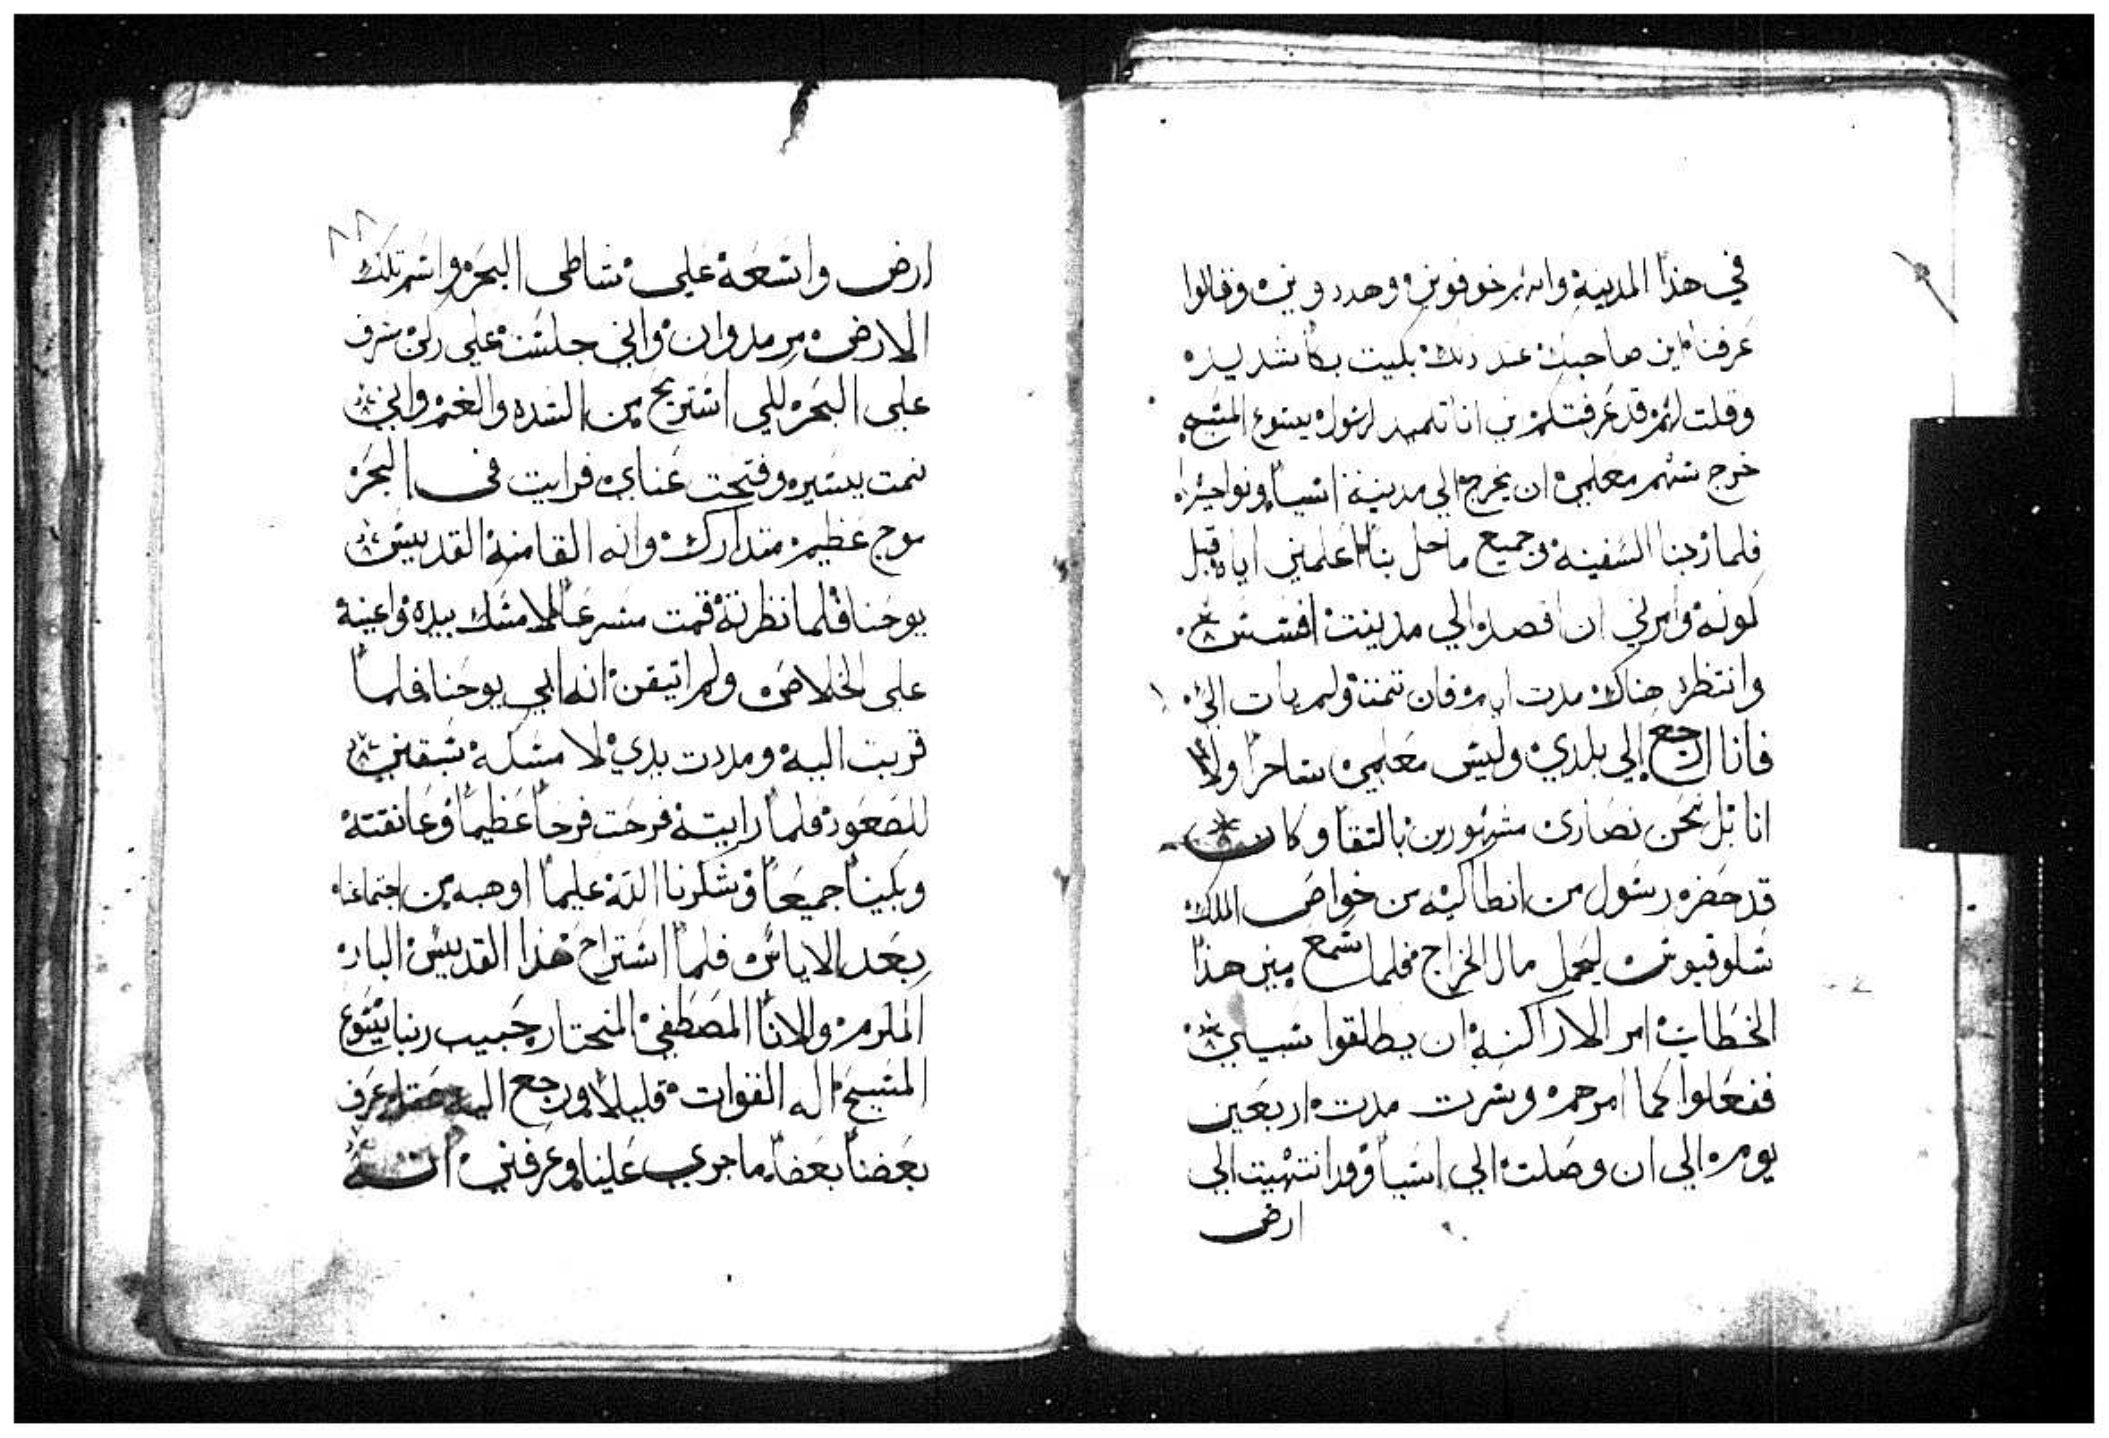 في هذا المدينة وانهم خوفوني وهددوني وقالوا
عرفنا اين صاحبك عند ذلك بكيت بكاً شديده
وقلت لهم قد عرفتكم بي انا تلميد لرسول يسوع المسيح
خرج سهم معلمي ان يخرج الي مدينة اسياً ونواحيها
فلما ركبنا السفينة جميع ما حل بنا اعلمني اياه قبل
كونه وامرني ان اقصد الي مدينت افسس
وانتظره هناك مدت ايام فان تمتة ولم يات الي
فانا ارجع الي بلدي وليس معلمي ساحراً ولا
انا بل نحن نصارى مشهورين بالتقا وكان
قد حضر رسول من انطاكيه من خواص الملك
سلوقيوس ليحمل مال الخراج فلما سمع مني هذا
الخطاب امر الاراكنة ان يطلقوا سبيلي
ففعلوا كما امرهم وسرت مدت اربعين
يوم الي ان وصلت الي اسياً وانتهيت الي
ارض
ارض واسعة علي شاطى البحر واسم تلك
الارض مرمدوان واني جلست على مشرف
على البحر لكي استريح من الشده والغم واني
نمت يسير وفتحت عناي فرايت في البحر
موج عظيم متدارك وانه القا منه القديس
يوحنا فلما نظرته قمت مسرعاً لامسك بيده واعينه
على الخلاص ولم اتيقن انه ابي يوحنا فلماً
قربت اليه ومددت يدي لامسكه سبقني
للصعود فلماً رايته فرحت فرحاً عظيماً وعانقته
وبكيناً جميعاً وشكرنا الله عليماً اوهبه من اجتماعنا
بعد الاياس فلماً استراح هذا القديس البار
المكرم والانأ المصطفي المنحتار حبيب ربنا يسوع
المسيح اله القوات قليلاً ورجع اليه عقله عرف
بعضناً بعضاً ما جري علينا وعرفني انه